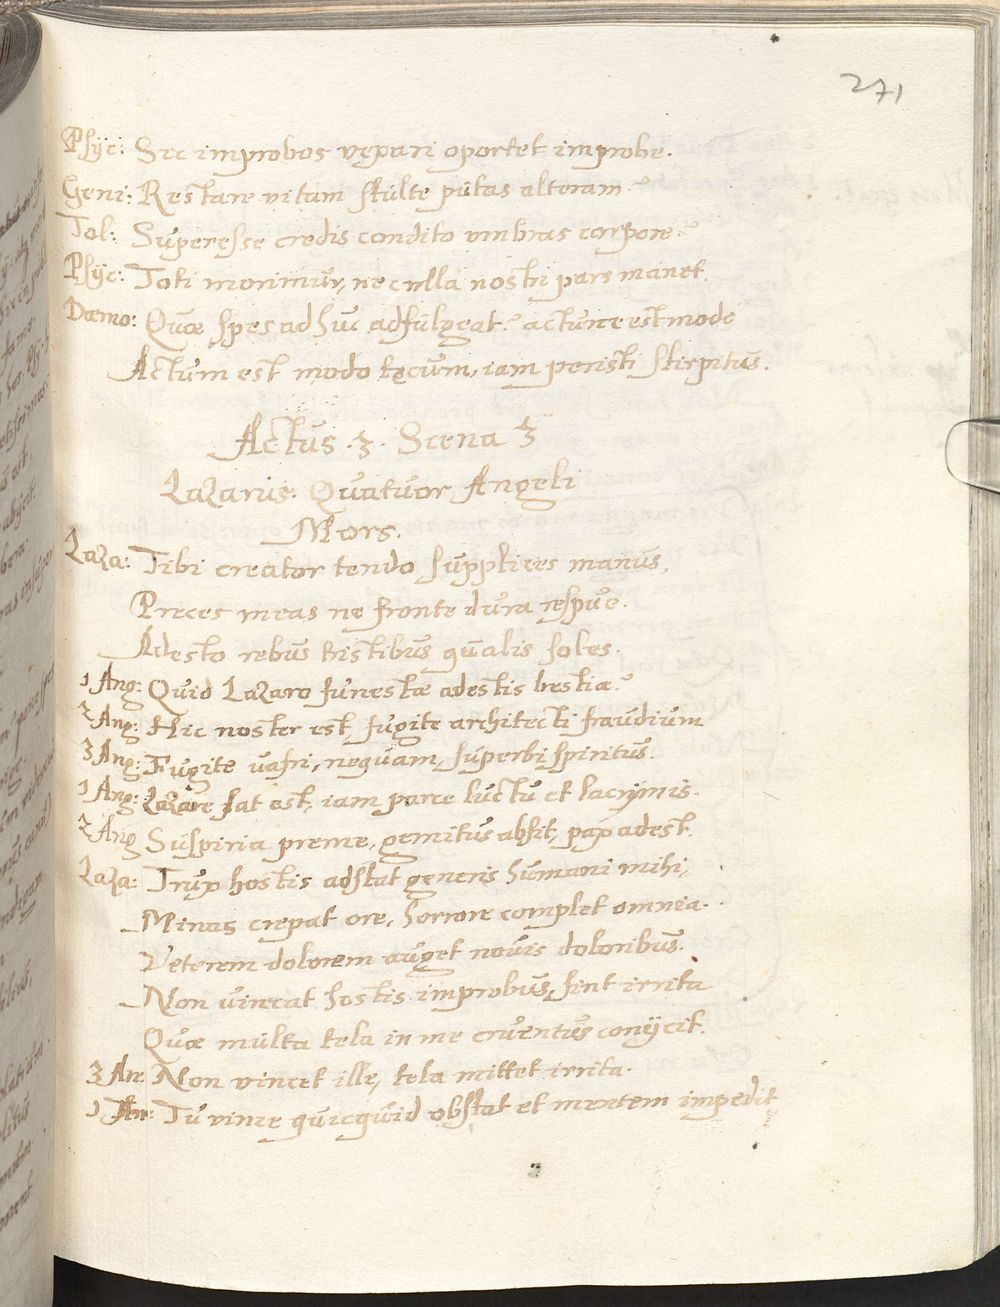 271
Psyc: Sic improbos vexari oportet improbe.
Geni: Restare vitam stulte putas alteram?
Tol: Superesse credis condito umbras corpore?
Psyc: Toti morimur, nec ulla nostri pars manet.
Dæmo: Quæ spes adhuc adfulgeat? actum est modo
Actum est modo tecum, iam peristi stirpitus.
Actus .3. Scena 3
Lazarus. Quatuor Angeli
Mors.
Laza: Tibi creator tendo supplices manus,
Preces meas ne fronte dura respue.
Adesto rebus tristibus qualis soles.
1 Ang: Quid Lazaro funestæ adestis bestiæ?
2 Ang: Hic noster est, fugite architecti fraudium
3 Ang: Fugite vafri, nequam, superbi spiritus.
1 Ang: Lazare sat est, iam parce luctu et lacrymis.
2 Ang Suspiria preme, gemitus absit, pax adest.
Laza: Trux hostis adstat generis humani mihi,
Minas crepat ore, horrore complet omnia.
Veterem dolorem auget novis doloribus.
Non vincat hostis improbus, sint irrita
Quæ multa tela in me cruentus conijcit.
3 An: Non vincet ille, tela mittet irrita.
1 An: Tu vince quicquid obstat et mentem impedit